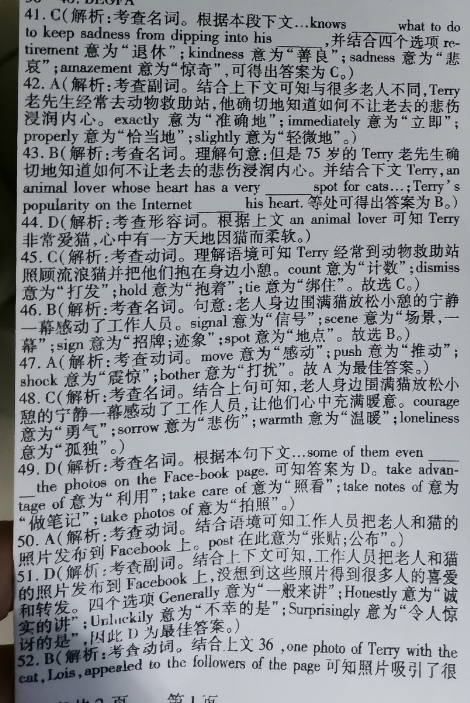 41. C(解析:考查名词。根据本段下文…knows ______ what to do
to keep sadness from dipping into his ______,并结合四个选项 re-
tirement 意为“退休”;kindness 意为“善良”;sadness 意为“悲
哀”;amazement 意为“惊奇”,可得出答案为 C。)
42. A(解析:考查副词。结合上下文可知与很多老人不同,Terry
老先生经常去动物救助站,他确切地知道如何不让老去的悲伤
浸润内心。exactly 意为“准确地”;immediately 意为“立即”;
properly 意为“恰当地”;slightly 意为“轻微地”。)
43. B(解析:考查名词。理解句意:但是 75 岁的 Terry 老先生确
切地知道如何不让老去的悲伤浸润内心。并结合下文 Terry,an
animal lover whose heart has a very ______ spot for cats…;Terry's
popularity on the Internet ______ his heart. 等处可得出答案为 B。)
44. D(解析:考查形容词。根据上文 an animal lover 可知 Terry
非常爱猫,心中有一方天地因猫而柔软。)
45. C(解析:考查动词。理解语境可知 Terry 经常到动物救助站
照顾流浪猫并把他们抱在身边小憩。count 意为“计数”;dismiss
意为“打发”;hold 意为“抱着”;tie 意为“绑住”。故选 C。)
46. B(解析:考查名词。句意:老人身边围满猫放松小憩的宁静
一幕感动了工作人员。signal 意为“信号”;scene 意为“场景,一
幕”;sign 意为“招牌;迹象”;spot 意为“地点”。故选 B。)
47. A(解析:考查动词。move 意为“感动”;push 意为“推动”;
shock 意为“震惊”;bother 意为“打扰”。故 A 为最佳答案。)
48. C(解析:考查名词。结合上句可知,老人身边围满猫放松小
憩的宁静一幕感动了工作人员,让他们心中充满暖意。courage
意为“勇气”;sorrow 意为“悲伤”;warmth 意为“温暖”;loneliness
意为“孤独”。)
49. D(解析:考查名词。根据本句下文…some of them even ___
_the photos on the Face-book page. 可知答案为 D。take advan-
tage of 意为“利用”;take care of 意为“照看”;take notes of 意为
“做笔记”;take photos of 意为“拍照”。)
50. A(解析:考查动词。结合语境可知工作人员把老人和猫的
照片发布到 Facebook 上。post 在此意为“张贴;公布”。)
51. D(解析:考查副词。结合上下文可知,工作人员把老人和猫
的照片发布到 Facebook 上,没想到这些照片得到很多人的喜爱
和转发。四个选项 Generally 意为“一般来讲”;Honestly 意为“诚
实的讲”;Unluckily 意为“不幸的是”;Surprisingly 意为“令人惊
讶的是”,因此 D 为最佳答案。)
52. B(解析:考查动词。结合上文 36 ,one photo of Terry with the
cat,Lois,appealed to the followers of the page 可知照片吸引了很